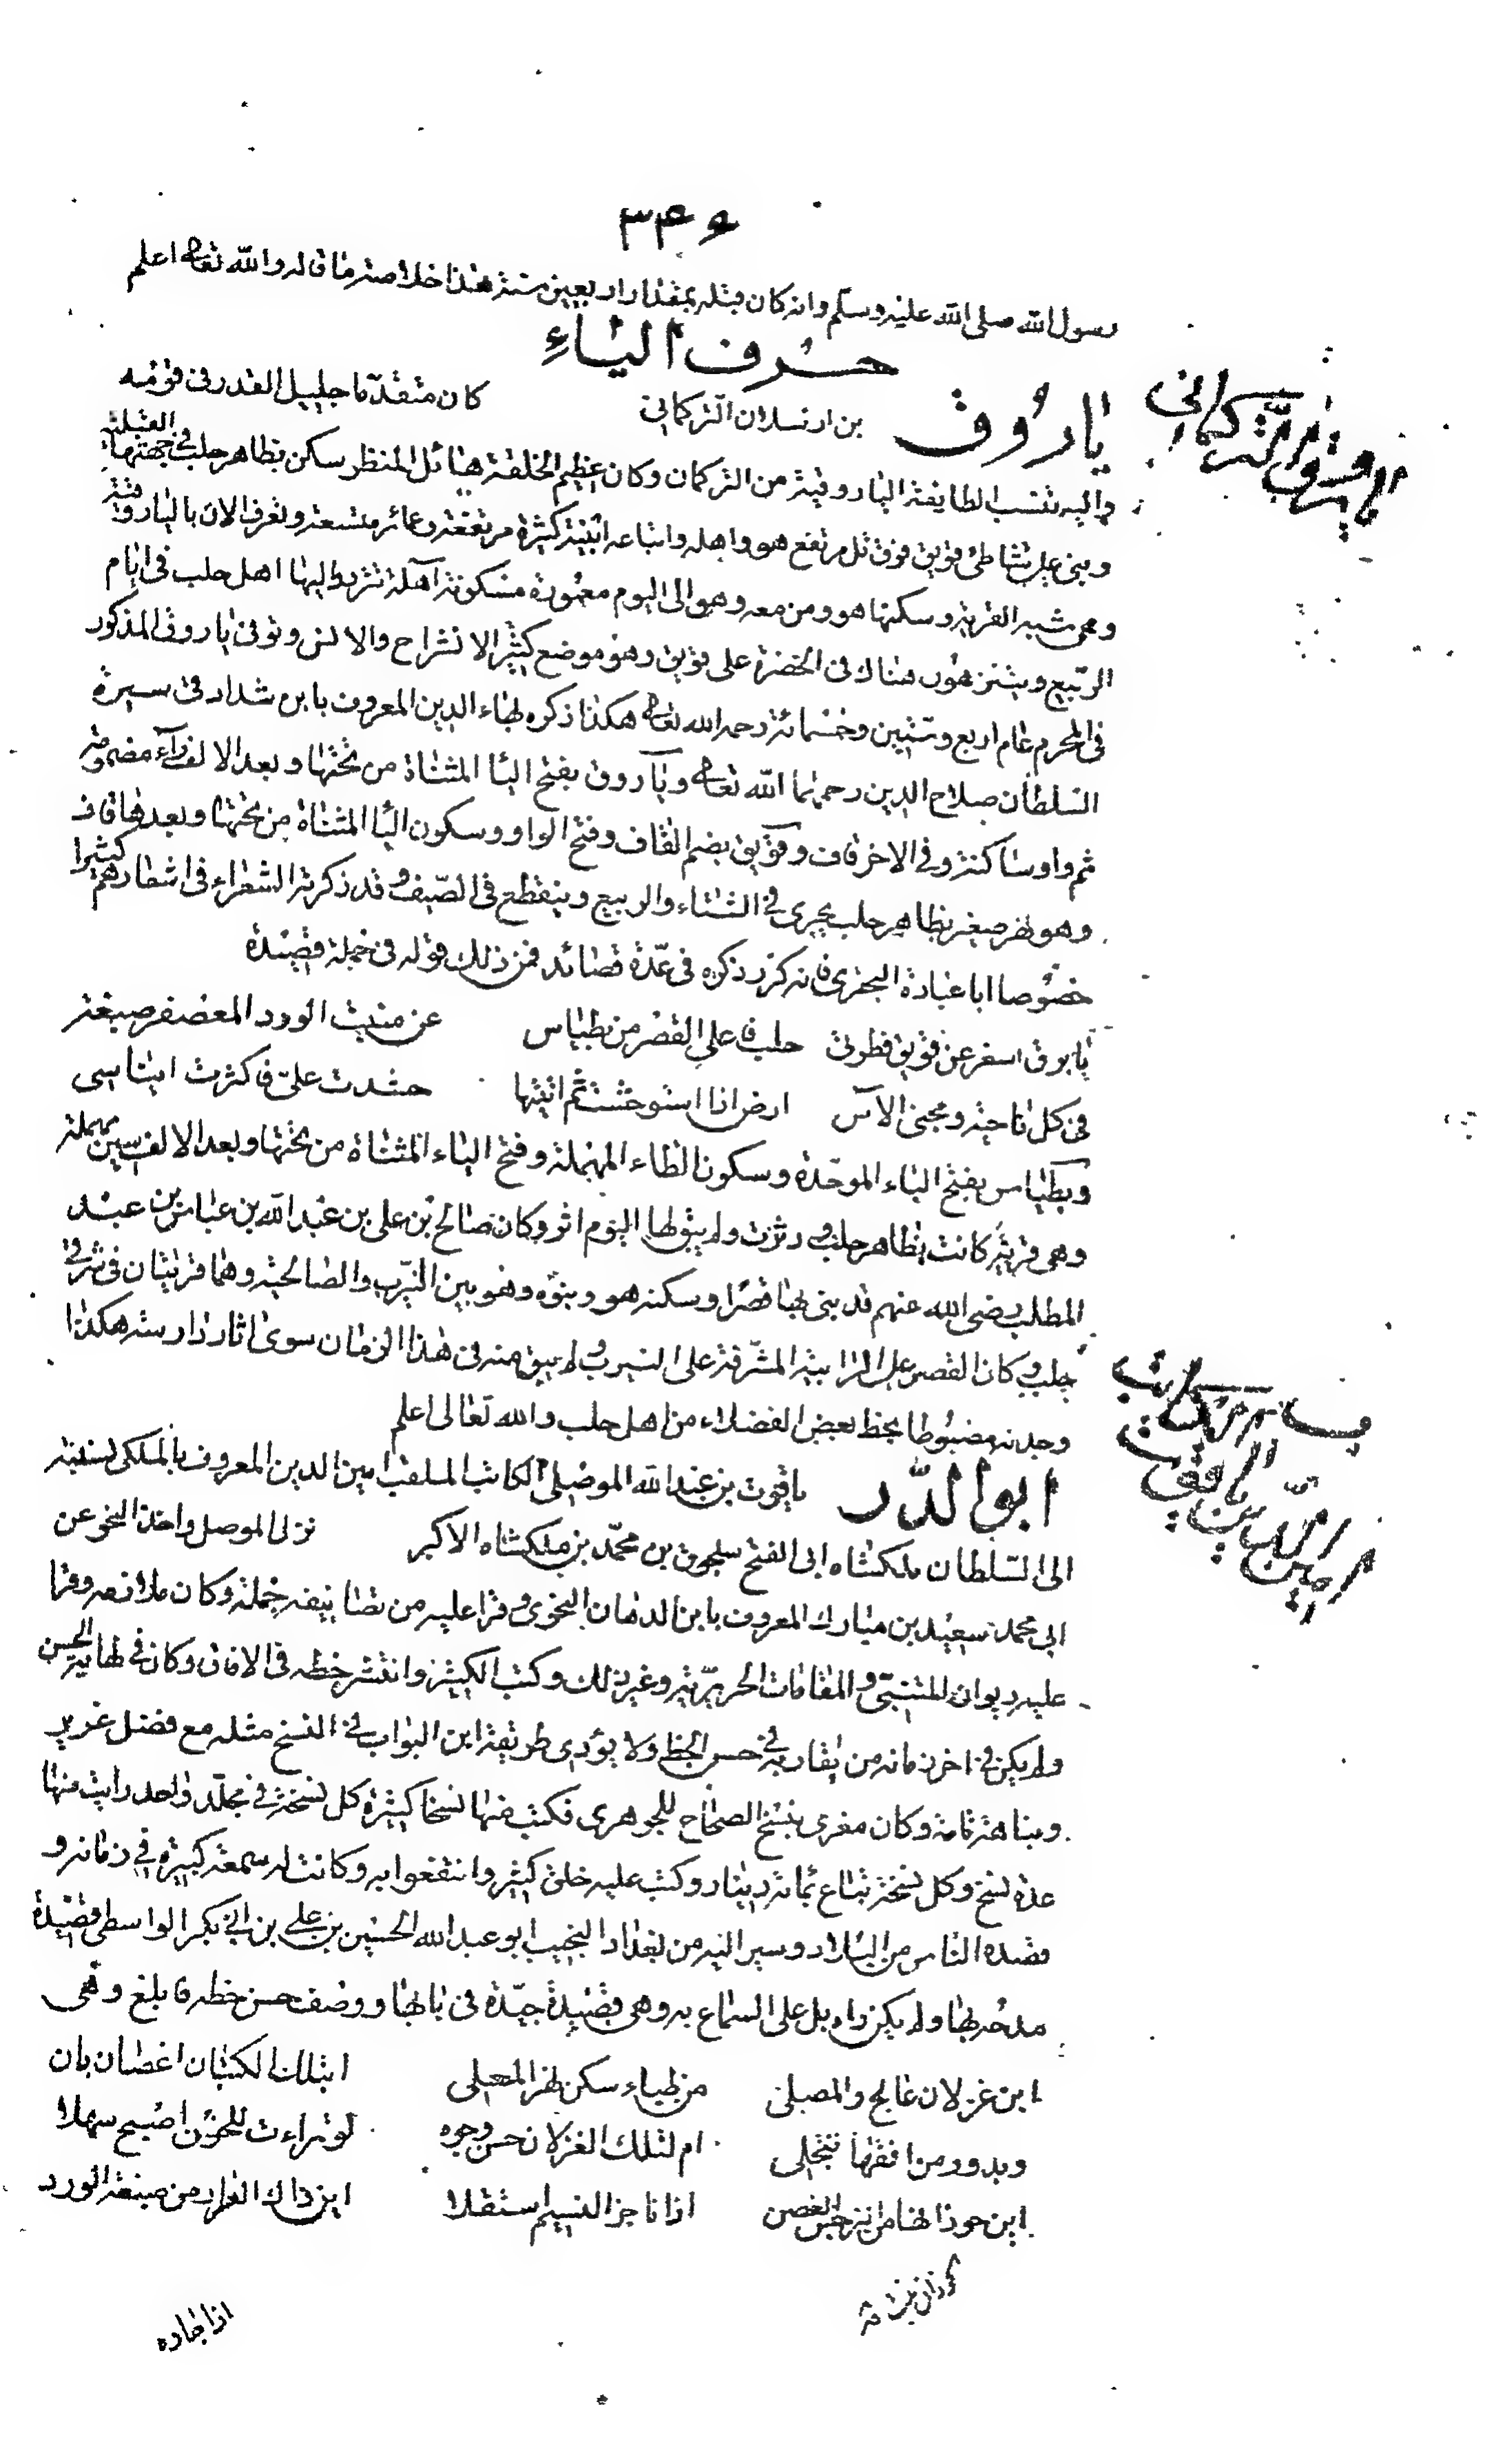 رسول الله صلى الله عليه وسلم وانه كان قبله بمقدار اربعين سنة هذا خلاصة ما قاله والله تعالى اعلم
حرف الياء
ياروق بن ارسلان التركماني كان متقدما جليل القدر في قومه
واليه تنتسب الطايفة الياروقية من التركمان وكان عظيم الخلقة هائل المنظر سكن بظاهر حلب في جهتها القبلة
وبنى على شاطئ قويق فوق تل مرتفع هو واهله واتباعه ابنية كثيرة مرتفعة وعمائر متسعة وتعرف الان بالياروقية
وهي شبه القرية وسكنها هو ومن معه وهو الى اليوم معمورة مسكونة آهلة تتردد اليها اهل حلب في ايام
الربيع ويتنزهون هناك في الخضرة على قويق وهو موضع كثير الانشراح والانس وتوفي ياروق المذكور
في المحرم عام اربع وستين وخمسمائة رحمه الله تعالى هكذا ذكره بهاء الدين المعروف بابن شداد في سيرة
السلطان صلاح الدين رحمهما الله تعالى وياروق بفتح اليا المثناة من تحتها وبعد الالف راء مضمومة
ثم واو ساكنة وفي الاخر قاف وقويق بضم القاف وفتح الواو وسكون اليا المثناة من تحتها وبعدها قاف
وهو نهر صغير بظاهر حلب يجرى في الشتاء والربيع وينقطع في الصيف وقد ذكرته الشعراء في اشعارهم كثيرا
خصوصا ابا عبادة البحترى فانه كرر ذكره في عدة قصائد فمن ذلك قوله في جملة قصيدة
يا برق اسفر عن قويق فطرتى حلب فاعلى القصر من بطياس عن منبت الورد المعصفر صبغه
في كل ناحية ومجنى الآس ارض اذا استوحشت ثم اتيتها حشدت على فاكثرت ايناسى
وبطياس بفتح الباء الموحدة وسكون الطاء المهملة وفتح الياء المثناة من تحتها وبعد الالف سين مهملة
وهى قرية كانت بظاهر حلب ودثرت ولم يبق لها اليوم اثر وكان صالح بن على بن عبد الله بن عباس بن عبد
المطلب رضى الله عنهم قد بنى بها قصرا وسكنه هو وبنوه وهو بين النيرب والصالحية وهما قريتان في شرقي
حلب وكان القصر على الرابية المشرفة على النيرب ولم يبق منه في هذا الزمان سوى اثار دارسة هكذا
وجدته مضبوطا بخط بعض الفضلاء من اهل حلب والله تعالى اعلم
ابو الدر ياقوت بن عبد الله الموصلى الكاتب الملقب امين الدين المعروف بالملكى نسبته
الى السلطان ملكشاه ابى الفتح سلجوق بن محمد بن ملكشاه الاكبر نزل الموصل واخذ النحو عن
ابي محمد سعيد بن مبارك المعروف بابن الدهان النحوى وقرا عليه من تصانيفه جملة وكان ملازمه وقرا
عليه ديوان المتنبى والمقامات الحريرية وغير ذلك وكتب الكثير وانتشر خطه في الافاق وكان في نهاية الحسن
ولم يكن في اخر زمانه من يقاربه في حسن الخط ولا يؤدى طريقة ابن البواب في النسخ مثله مع فضل غزير
ونباهة تامة وكان مغرى بنسخ الصحاح للجوهرى فكتب منها نسخا كثيرة كل نسخة في مجلد واحد رايت منها
عدة نسخ وكل نسخة تباع بمائة دينار وكتب عليه خلق كثير وانتفعوا به وكانت له سمعة كبيرة في زمانه و
قصده الناس من البلاد وسير اليه من بغداد النجيب ابو عبد الله الحسين بن على بن ابي بكر الواسطى قصيدة
مدحه بها ولم يكن راه بل على السماع به وهى قصيدة جيدة في بابها ووصف حسن خطه فابلغ وهى
اين غزلان عالج والمصلى من ظباء سكن نهر المعلى ابتلك الكثبان اغصان بان
وبدور من افقها تتجلى ام لتلك الغزلان حسن وجوه لو تراءت للحزن اصبح سهلا
اين حوذانها من نرجس الغصن اذا ما جز النسيم استقلا اين ذاك العرار من صبغة الورد
اذا جاده
امين الدين ياقوت الكاتب